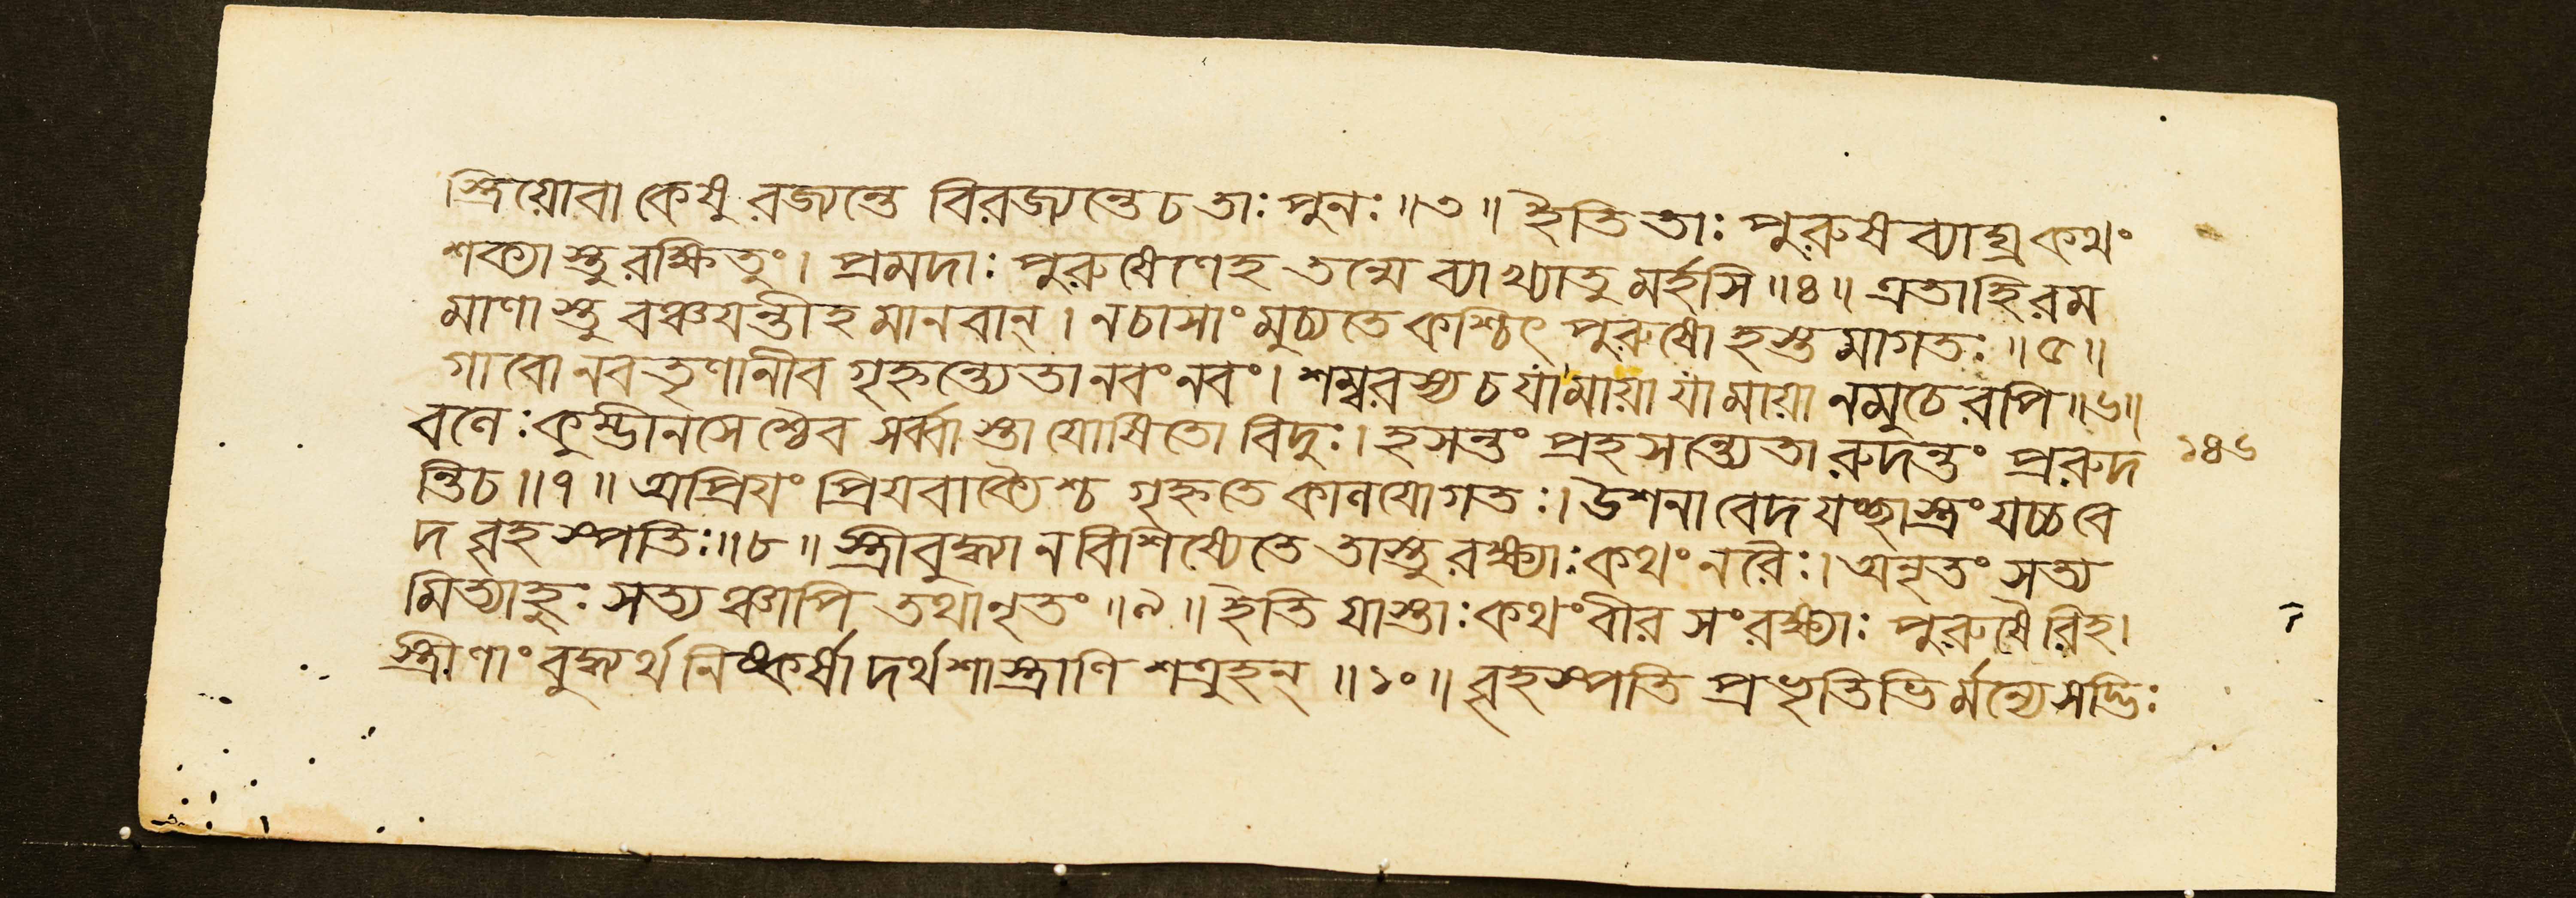 স্ত্রিয়োবা কেষু রজ্যন্তে বিরজ্যন্তেচ তাঃ পুনঃ॥৩॥ ইতি তাঃ পুরুষ ব্যাঘ্র কথং
শক্যাস্তু রক্ষিতুং। প্রমদাঃ পুরুষেণেহ তন্মে ব্যাখ্যাতু মর্হসি॥৪॥ এতাহি রম
মাণাস্তু বঞ্চযন্তীহ মানবান্। নচাসাং মুচ্যতে কশ্চিৎ পুরুষো হস্ত মাগতঃ॥৫॥
গাবো নব তৃণানীব গৃহ্ণন্ত্যেতা নবং নবং। শম্বরস্য চ যা মায়া যা মায়া নমুচেরপি॥৬॥
বলেঃ কুম্ভীনসেশ্চৈব সর্ব্বাস্তা যোষিতো বিদুঃ। হসন্তং প্রহসন্ত্যেতা রুদন্তং প্ররুদ
১৪৬
ন্তিচ॥৭॥ অপ্রিযং প্রিযবাক্যৈশ্চ গৃহ্ণতে কালযোগতঃ। উশনা বেদ যচ্ছাস্ত্রং যচ্চ বে
দ বৃহস্পতিঃ॥৮॥ স্ত্রীবুদ্ধ্যা ন বিশিষ্যেতে তাস্তু রক্ষ্যাঃ কথং নরৈঃ। অনৃতং সত্য
মিত্যাহুঃ সত্যঞ্চাপি তথানৃতং॥৯॥ ইতি যাস্তাঃ কথং বীর সংরক্ষ্যাঃ পুরুষৈরিহ।
স্ত্রীণাং বুদ্ধ্যর্থ নিষ্কর্ষা দর্থশাস্ত্রাণি শত্রুহন্॥১০॥ বৃহস্পতি প্রভৃতিভি র্মন্যে সদ্ভিঃ